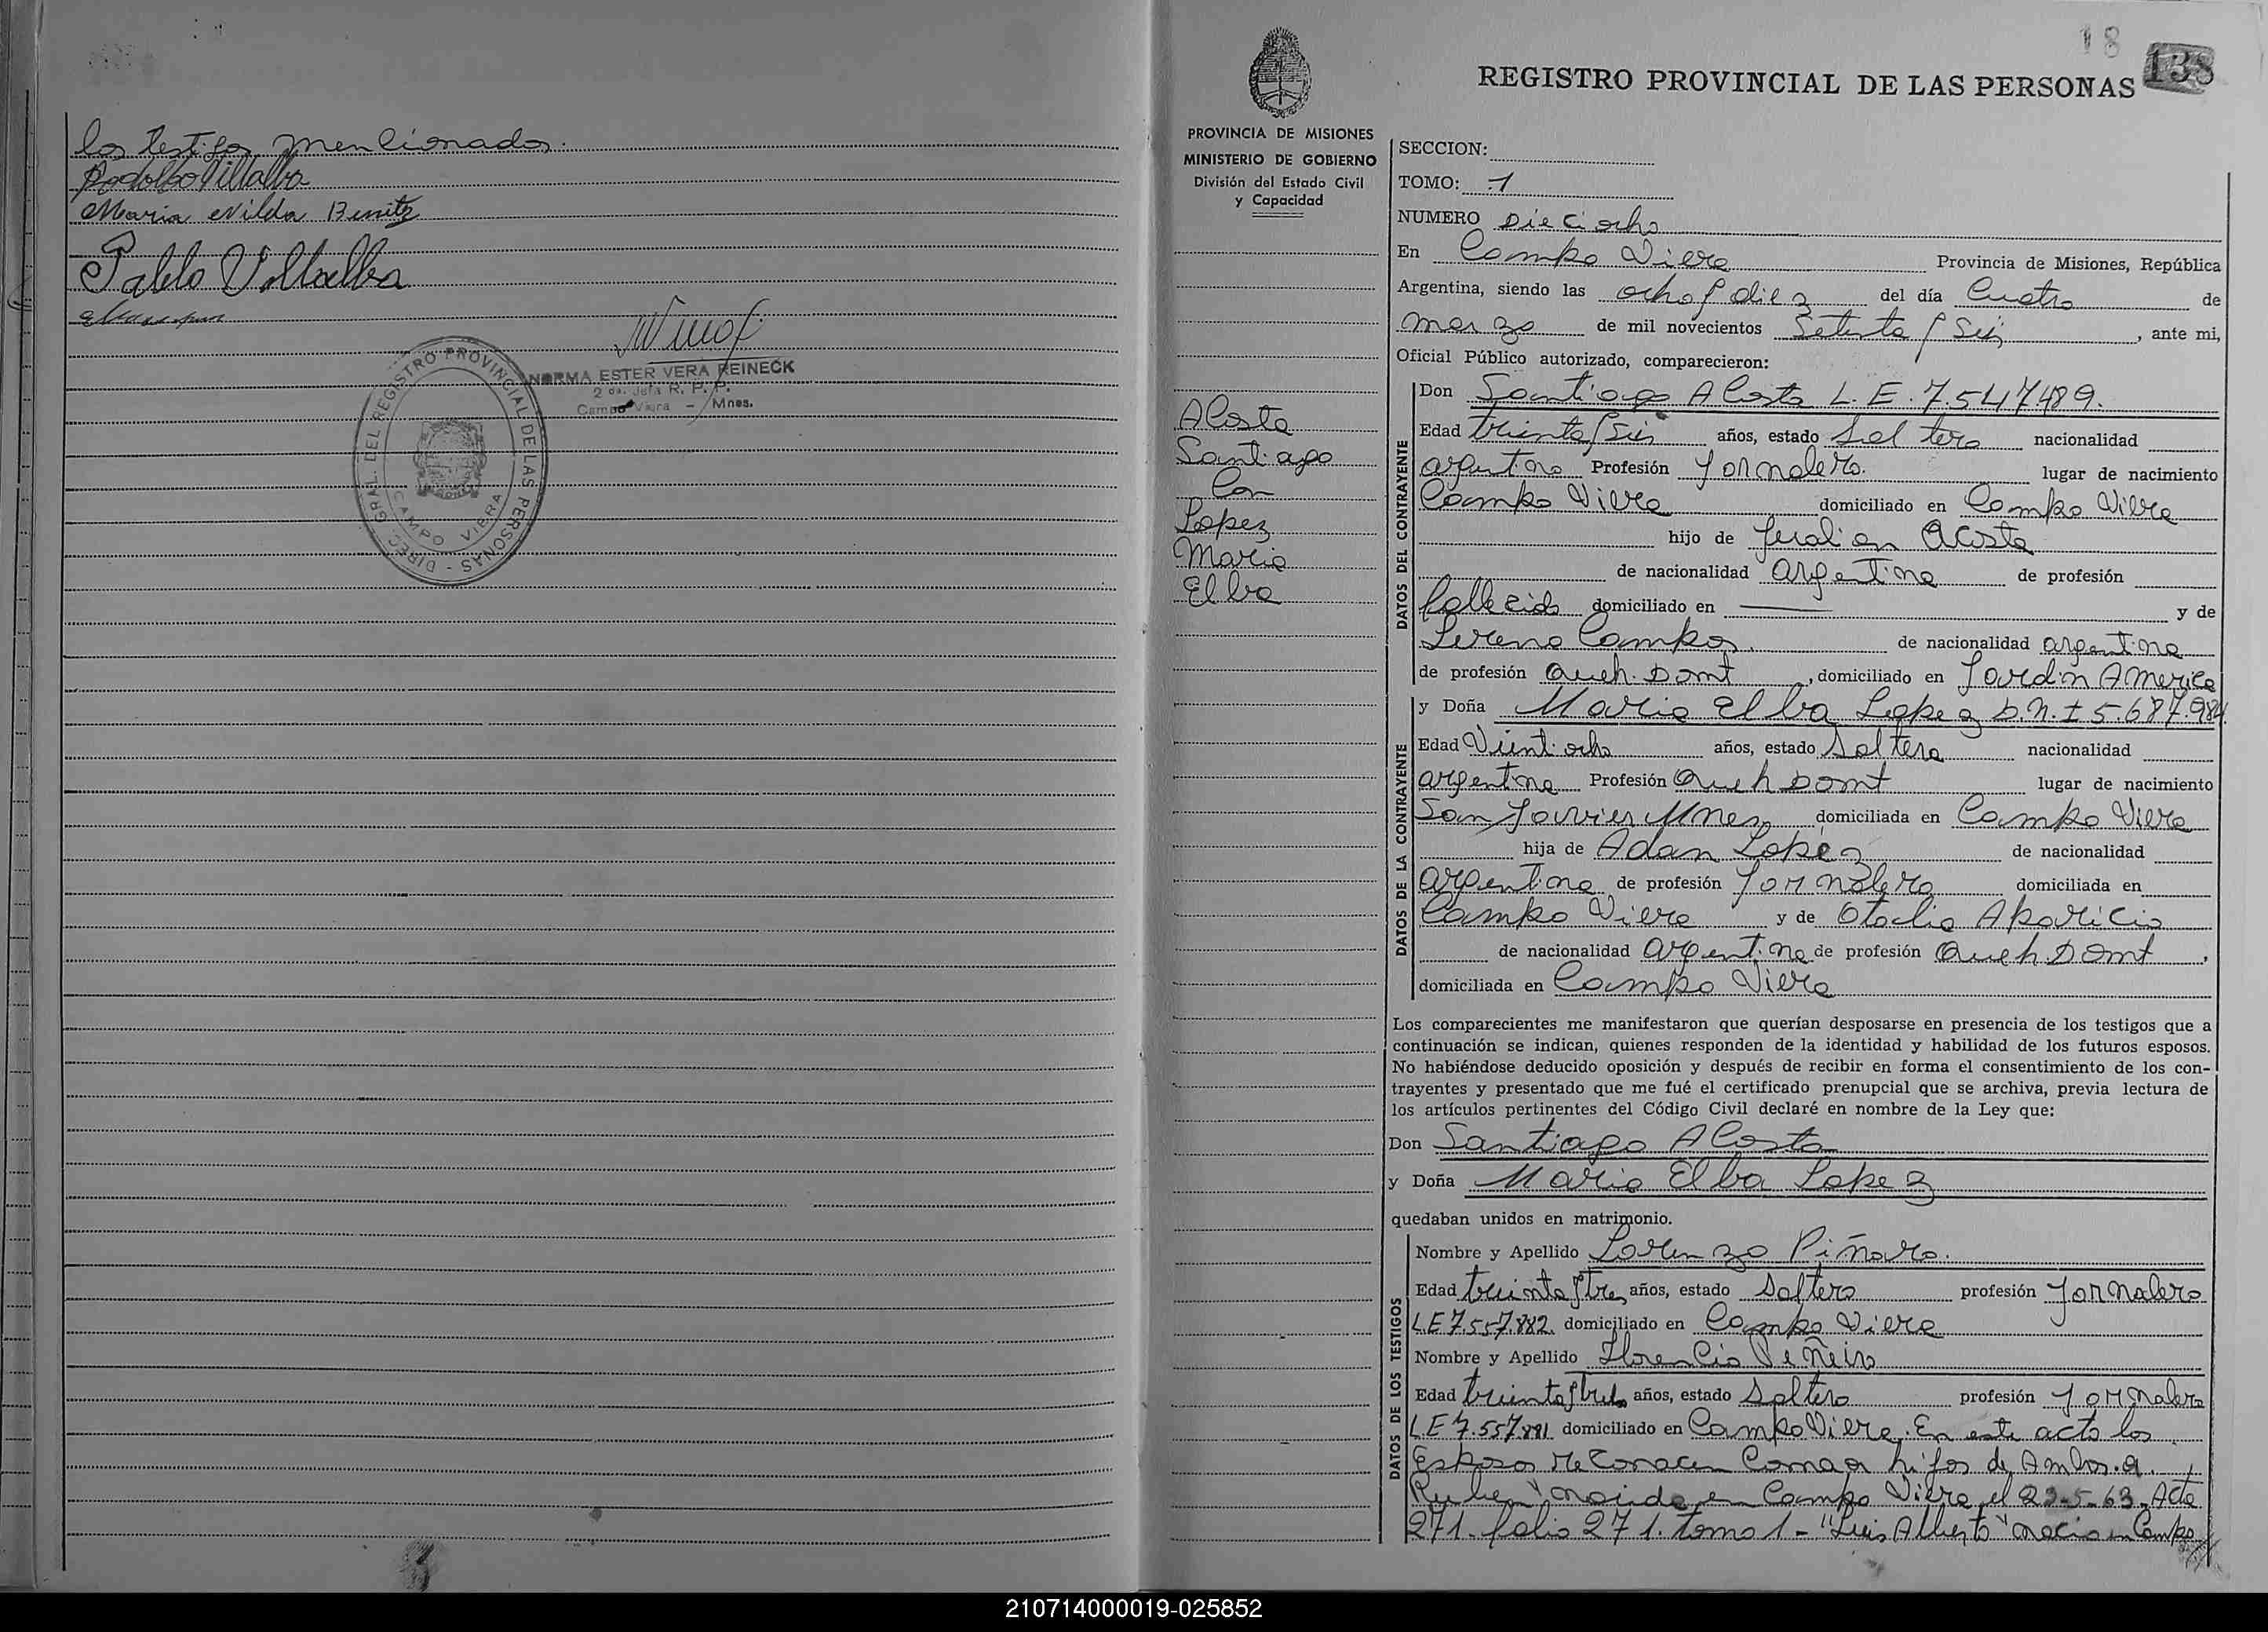 los testigos mencionados.
Rodolfo Villalba
Maria Nilda Benitz
Pablo Villalba
NORMA ESTER VERA REINECK
2 da. Jefa R. P. P.
Campo Viera - Mnes.
DIREC. GRAL. DEL REGISTRO PROVINCIAL DE LAS PERSONAS -
CAMPO VIERA
18
138
REGISTRO PROVINCIAL DE LAS PERSONAS
PROVINCIA DE MISIONES
MINISTERIO DE GOBIERNO
División del Estado Civil
y Capacidad
Acosta
Santiago
Con
Lopez
Maria
Elba
SECCION:
TOMO: 1
NUMERO Dieciocho
En Campo Viera Provincia de Misiones, República
Argentina, siendo las ocho y diez del día Cuatro de
marzo de mil novecientos Setenta y Seis, ante mi,
Oficial Público autorizado, comparecieron:
DATOS DEL CONTRAYENTE
Don Santiago Acosta L.E. 7.547489.
Edad treinta y Seis años, estado Soltero nacionalidad
argentino Profesión Jornalero. lugar de nacimiento
Campo Viera domiciliado en Campo Viera
hijo de Julian Acosta
de nacionalidad argentina de profesión
fallecido domiciliado en y de
Serena Campos de nacionalidad argentina
de profesión Queh. Domt, domiciliado en Jardin America
DATOS DE LA CONTRAYENTE
y Doña Maria Elba Lopez D.N.I 5.687.984
Edad Vientiocho años, estado Soltera nacionalidad
argentina Profesión Queh Domt lugar de nacimiento
San Javier Mnes domiciliada en Campo Viera
hija de Adan Lopez de nacionalidad
argentina de profesión Jornalero domiciliada en
Campo Viera y de Otaclia Aparicio
de nacionalidad argentina de profesión Queh. Domt,
domiciliada en Campo Viera
Los comparecientes me manifestaron que querían desposarse en presencia de los testigos que a
continuación se indican, quienes responden de la identidad y habilidad de los futuros esposos.
No habiéndose deducido oposición y después de recibir en forma el consentimiento de los con-
trayentes y presentado que me fué el certificado prenupcial que se archiva, previa lectura de
los artículos pertinentes del Código Civil declaré en nombre de la Ley que:
Don Santiago Acosta
y Doña Maria Elba Lopez
quedaban unidos en matrimonio.
DATOS DE LOS TESTIGOS
Nombre y Apellido Lorenzo Piñaro.
Edad treinta y tres años, estado Soltero profesión Jornalero
LE 7.557.882. domiciliado en Campo Viera
Nombre y Apellido Florencio Piñeiro
Edad treinta y tres años, estado Soltero profesión Jornalero
LE 7.557.881 domiciliado en Campo Viera. En este acto los
Esposos reconocen como a hijos de Ambos. a.
Ruben" nacido en Campo Viera el 29-5-63. Acta
271. folio 271. tomo 1 - "Luis Alberto" nacio en Campo
210714000019-025852